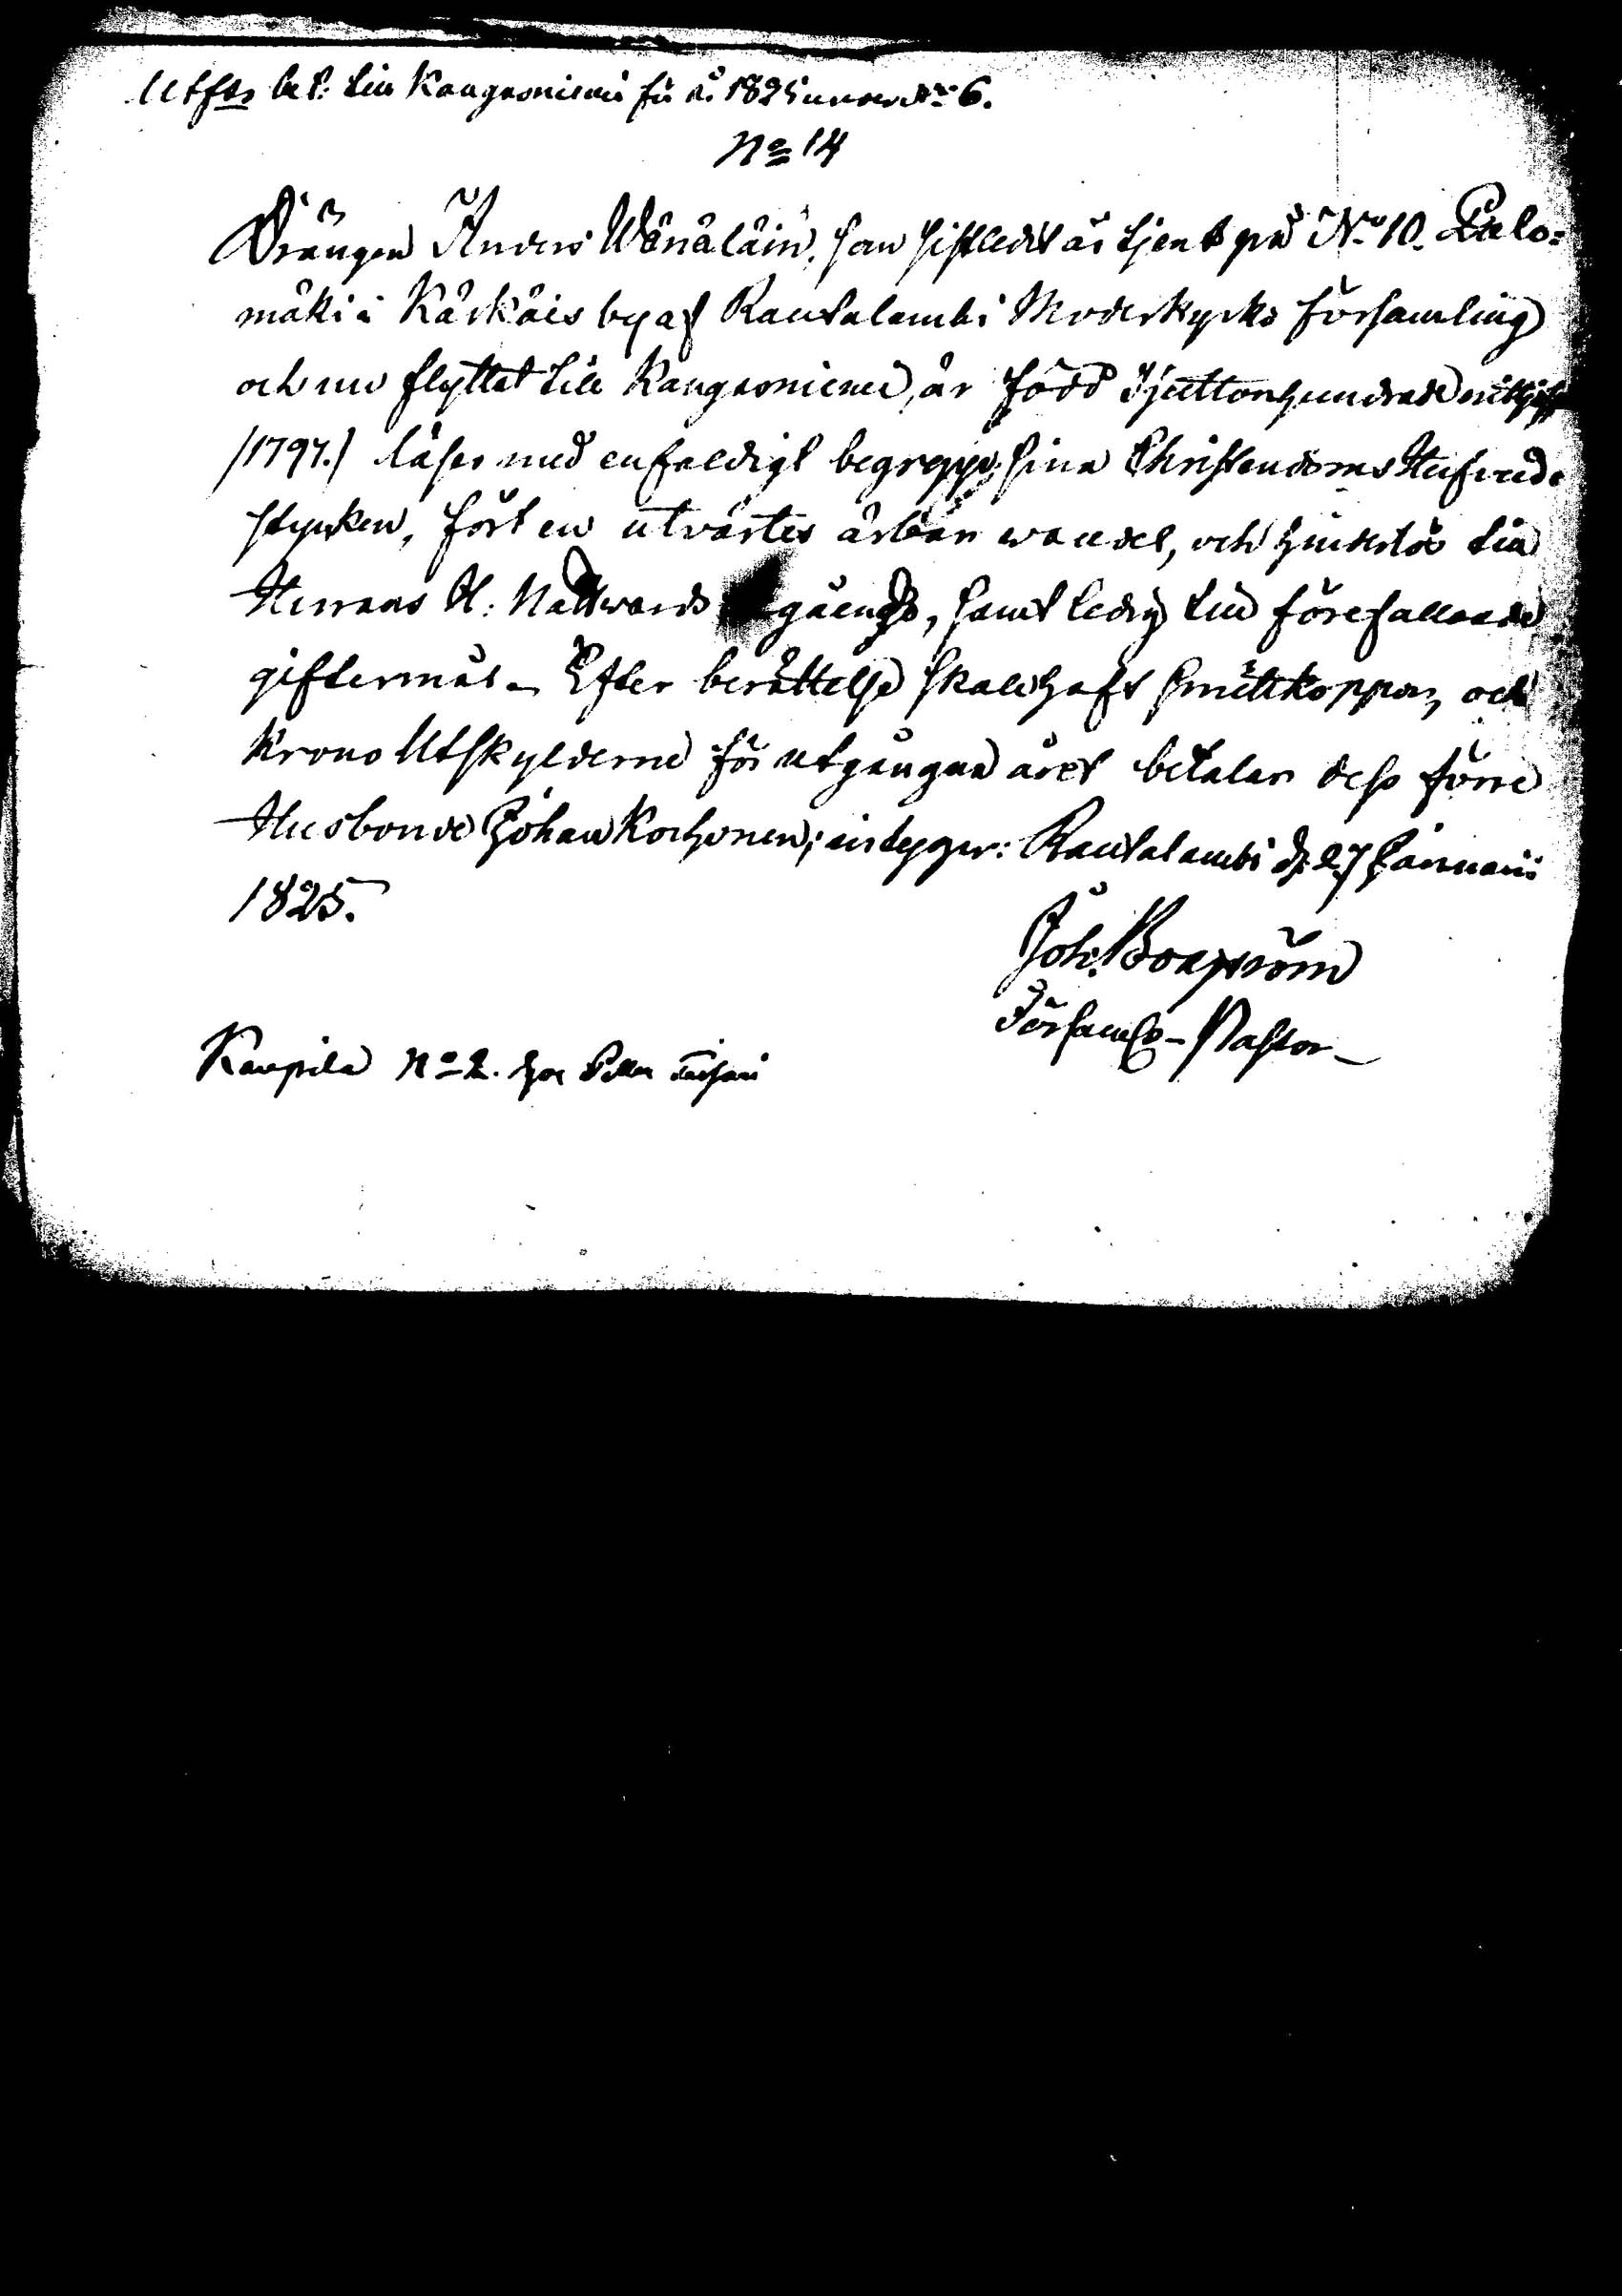 Utfts bet. till Kangasniemi för år 1825 under No 6.
No 14
Drängen Anders Wänäläin, som sistledit år tjent på No 10. Palo=
mäki i Kärkäis by af Rautalambi Moderkyrko församling
och nu flyttat till Kangasniemi, är född Sjuttonhundrade nittisju
/1797./ läser med enfaldigt begrepp sina Christendoms Hufvud-
stycken, fört en utvärtes ärbar wandel, och hinderlös till
Herrans H. Nattvards gående, samt ledig till förefallande
giftermål. Efter berättelse skall haft smittkoppor, och
Krono Utskylderne för utgångna året betalar dess förre
Husbonde Johan Korhonen; intygar: Rautalambi d. 27 Januarii
1825.
Joh. Bongström
Församls-Pastor
Kaupila No 2. hos Petter